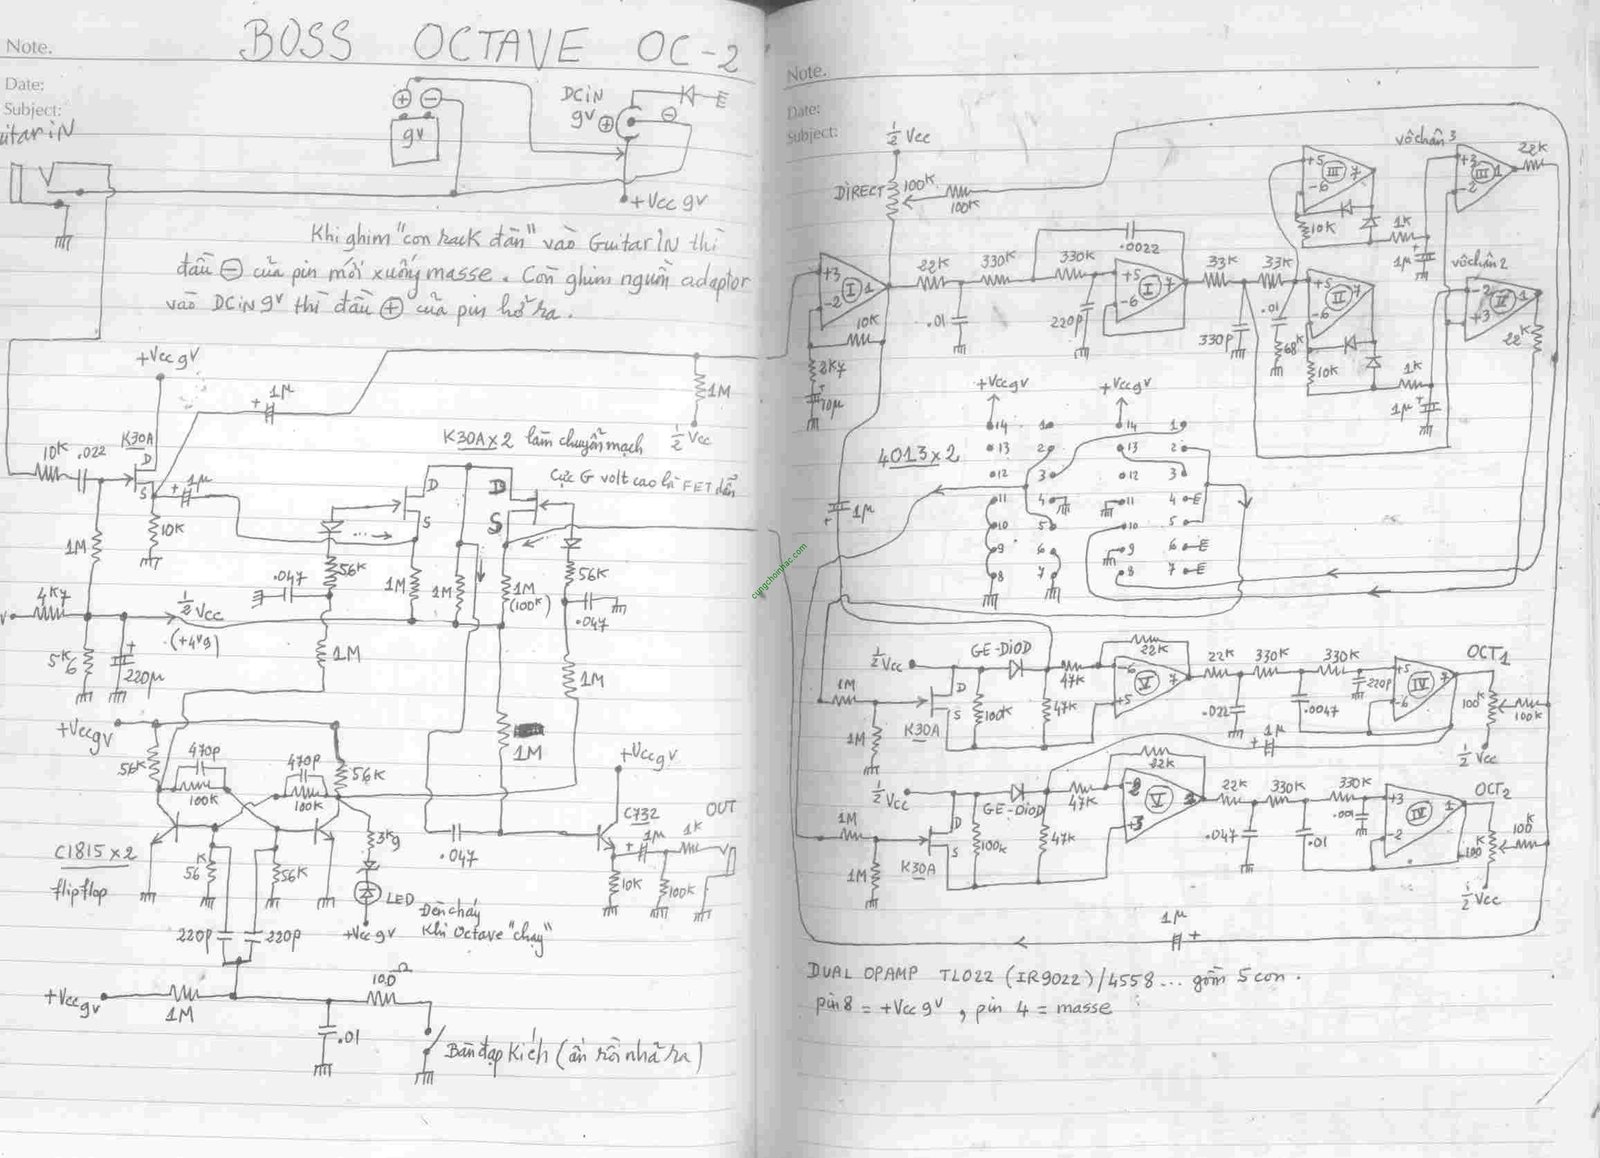 BOSS OCTAVE OC-2
Note.
Date:
Subject:
9V
DCiN
9V
+Vcc 9V
Khi ghim "con rack đàn" vào Guitar IN thì
đầu ⊖ của pin mới xuống masse. Còn ghim nguồn adaptor
vào DCiN 9V thì đầu ⊕ của pin hở ra.
+Vcc 9V
1µ
1M
½ Vcc
10K
.022
K30A
D
S
1µ
10K
1M
K30A x 2 làm chuyển mạch
Cực G volt cao là FET dẫn
D
S
D
S
56K
.047
1M
1M
1M
(100K)
56K
.047
4K7
½ Vcc
(+4V9)
5K6
220µ
1M
1M
1M
+Vcc 9V
56K
470p
100K
470p
100K
56K
C1815 x 2
flipflop
56K
56K
220p
220p
3K9
LED
+Vcc 9V
Đèn cháy
Khi Octave "chạy"
.047
+Vcc 9V
C732
1µ
1K
OUT
10K
100K
+Vcc 9V
1M
100Ω
.01
Bàn đạp Kích (ấn rồi nhả ra)
cungchoinhac.com
Note.
Date:
Subject:
½ Vcc
DIRECT
100K
100K
+3
-2
I
1
10K
2K7
10µ
22K
.01
330K
330K
.0022
220p
+5
-6
I
7
33K
33K
330p
.01
68K
+5
-6
III
7
10K
1K
1µ
vô chân 3
+3
-2
III
1
22K
+5
-6
II
7
10K
1K
1µ
vô chân 2
-2
+3
II
1
22K
4013 x 2
+Vcc 9V
+Vcc 9V
14
1
13
2
12
3
11
4
10
5
9
6
8
7
14
1
13
2
12
3
11
4
10
5
9
6
8
7
1µ
½ Vcc
GE-DiOD
1M
1M
K30A
D
S
100K
47K
47K
22K
-6
+5
V
7
22K
330K
330K
.022
.0047
220p
+5
-6
IV
7
OCT1
100K
100K
½ Vcc
1µ
½ Vcc
GE-DiOD
1M
1M
K30A
D
S
100K
47K
47K
22K
+3
V
22K
330K
330K
.047
.01
.001
+3
-2
IV
1
OCT2
100K
100K
½ Vcc
1µ
DUAL OPAMP TL022 (IR9022)/4558... gồm 5 con.
pin 8 = +Vcc 9V, pin 4 = masse